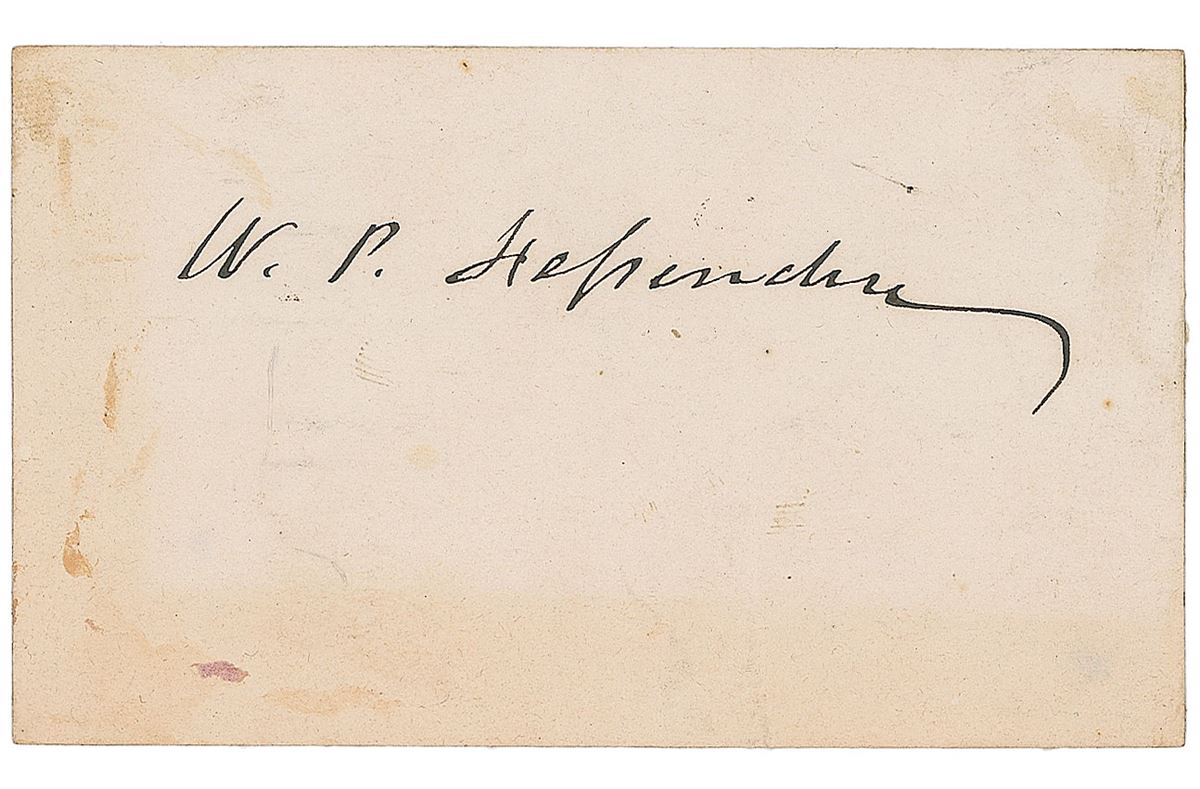 W. P. Fessenden